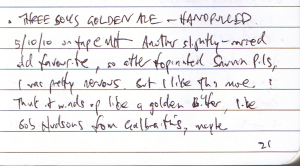 • THREE BOYS GOLDEN ALE – HANDPULLED
5/10/10 on tape Another slightly-
old favourite, so after Pils,
I was pretty nervous. But I like this more. I
Think it winds up like a golden bitter, like
Bob Hudsons from Galbraiths, maybe
21